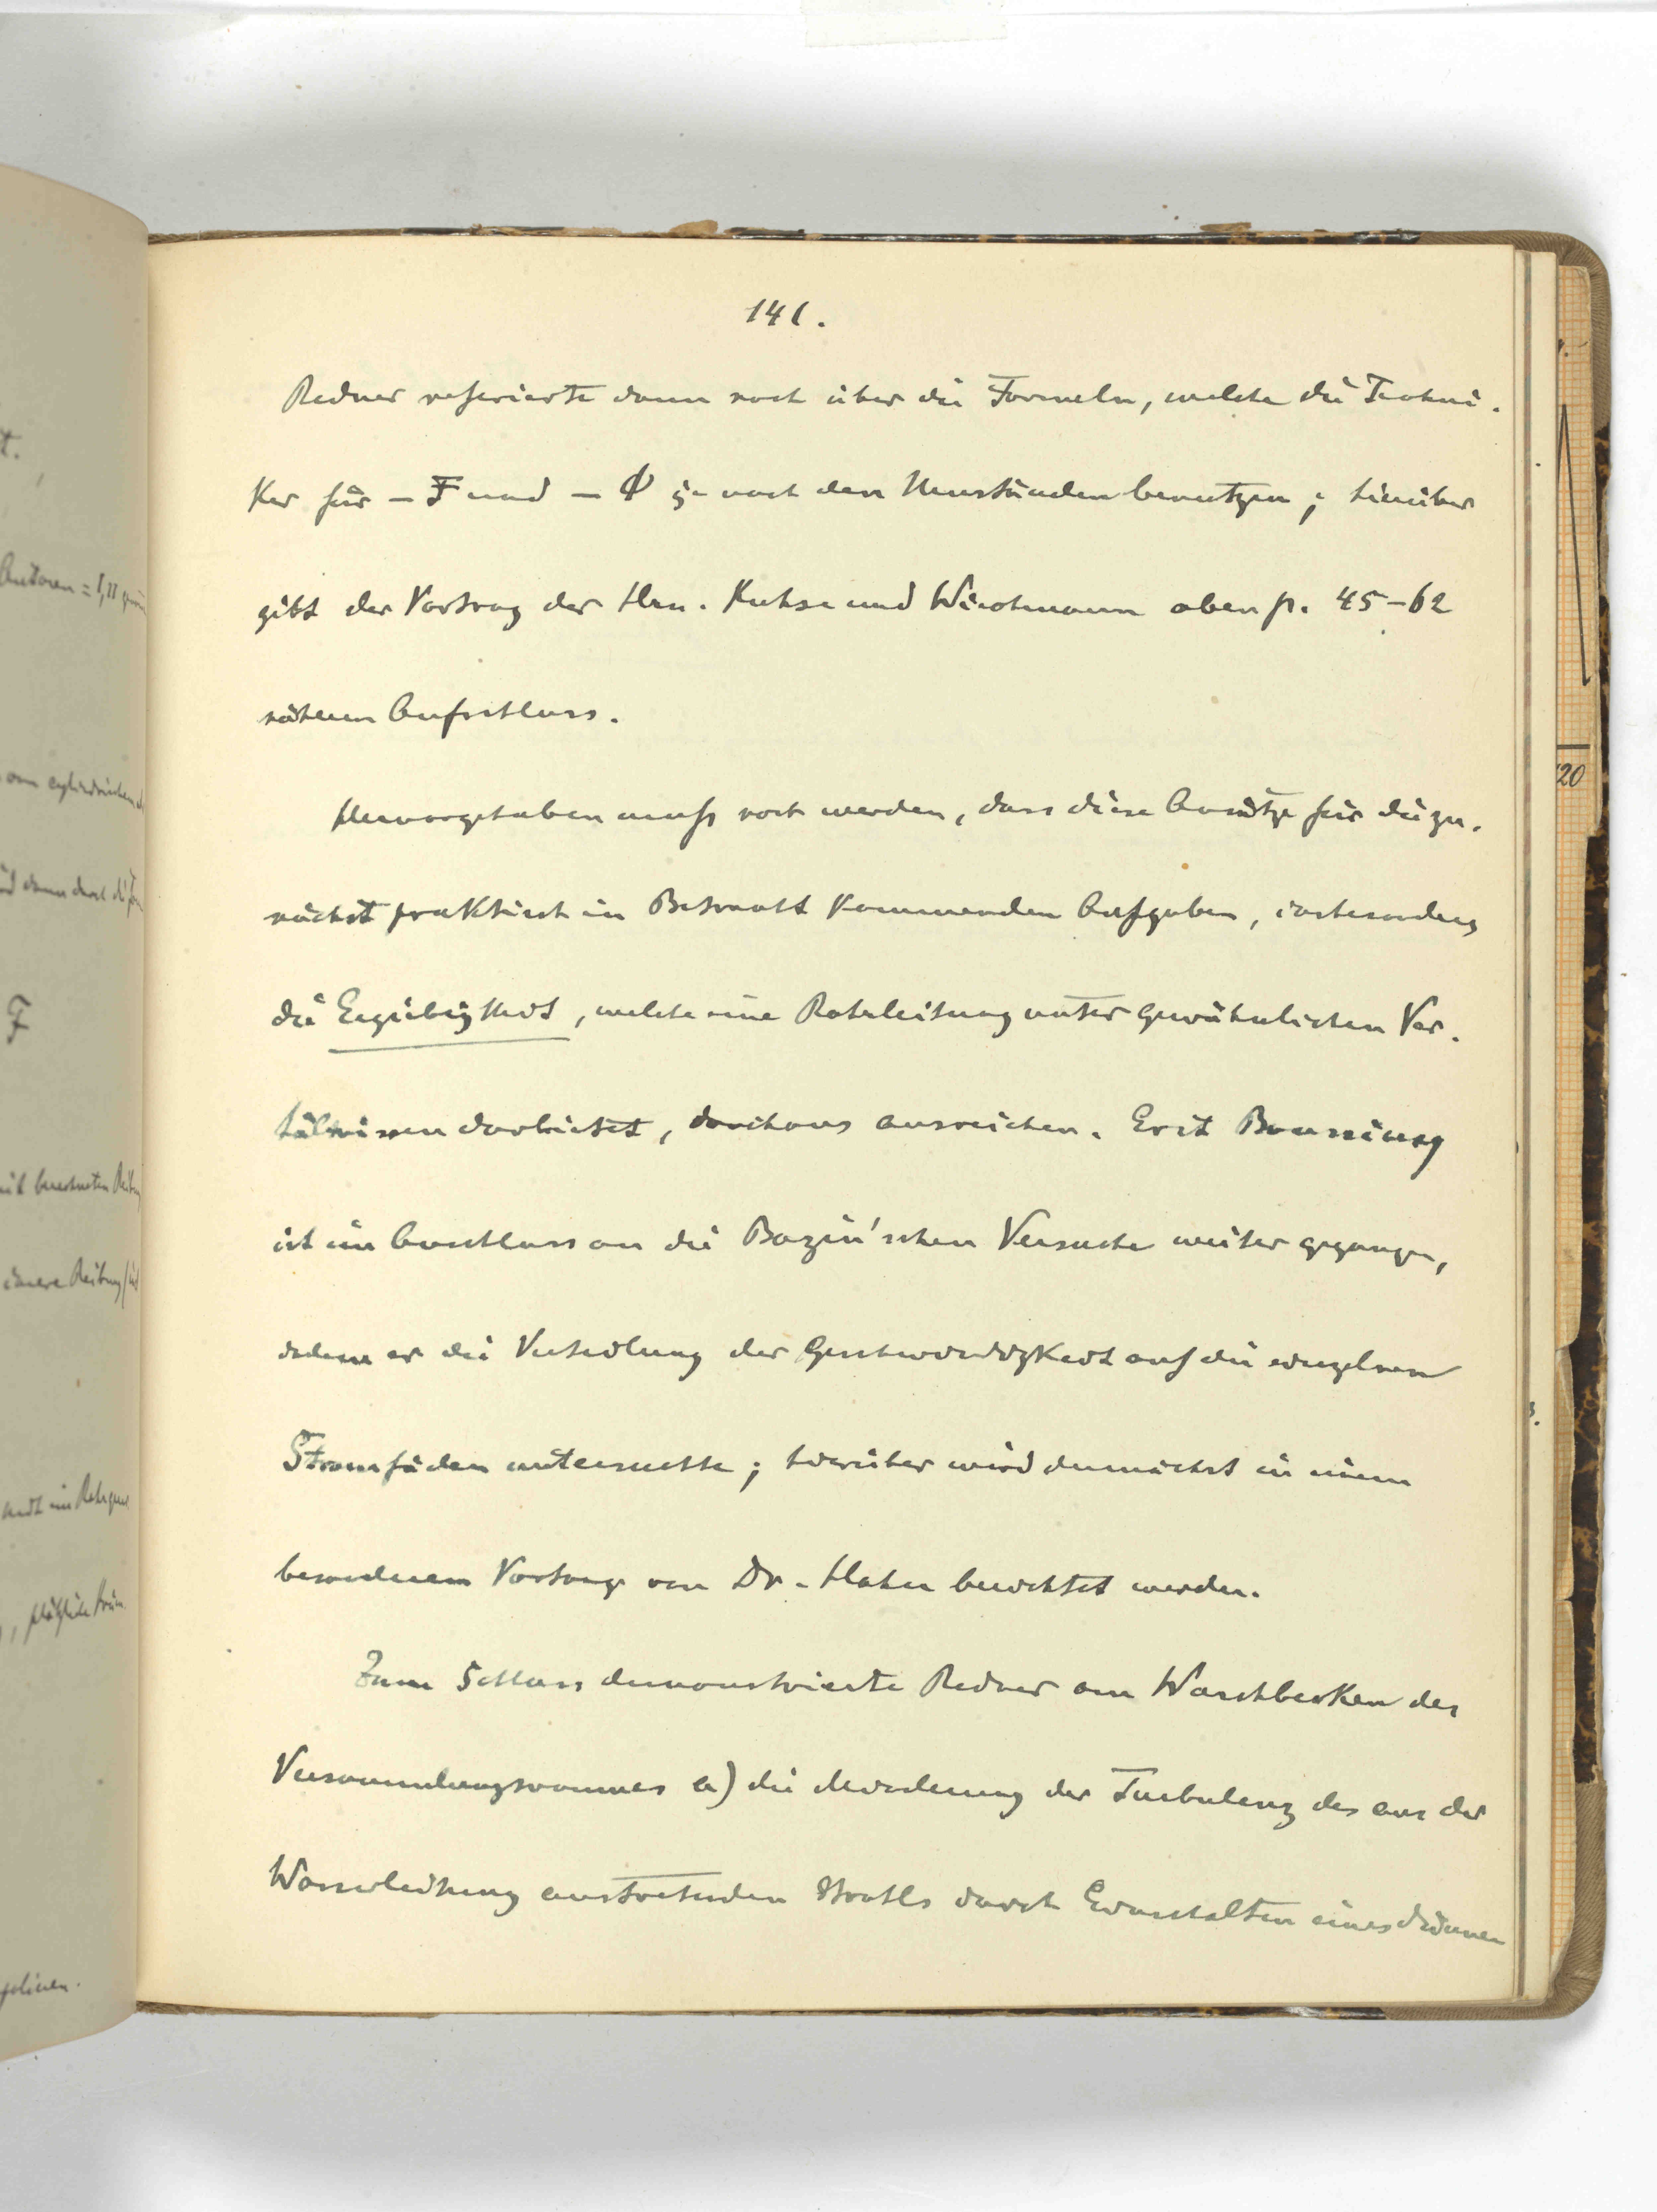 141.
Redner referierte dann noch über die Formeln, welche die Techni-
ker für – F und – Φ je nach den Umständen benutzen; hierüber
gibt der Vortrag der Hrn. Kuhse und Wiechmann oben p. 45–62
näheren Aufschluss.
Hervorgehoben muß noch werden, dass diese Ansätze für die zu-
nächst praktisch in Betracht kommenden Aufgaben, insbesondere
die Ergiebigkeit, welche eine Rohrleitung unter gewöhnlichen Ver-
hältnissen darbietet, durchaus ausreichen. Erst Boussinesq
ist im Anschluss an die Bazin'schen Versuche weiter gegangen,
indem er die Verteilung der Geschwindigkeit auf die einzelnen
Stromfäden untersuchte; hierüber wird demnächst in einem
besonderen Vortrage von Dr. Hahn berichtet werden.
Zum Schluss demonstrierte Redner am Waschbecken des
Versammlungsraumes a) die Minderung der Turbulenz des aus der
Wasserleitung austretenden Strahls durch Einschalten eines
Autoren = 1,11
vom cylindrischen
dann durch die
F
mit berechneten
innere Reibung
im
, plötzliche
20